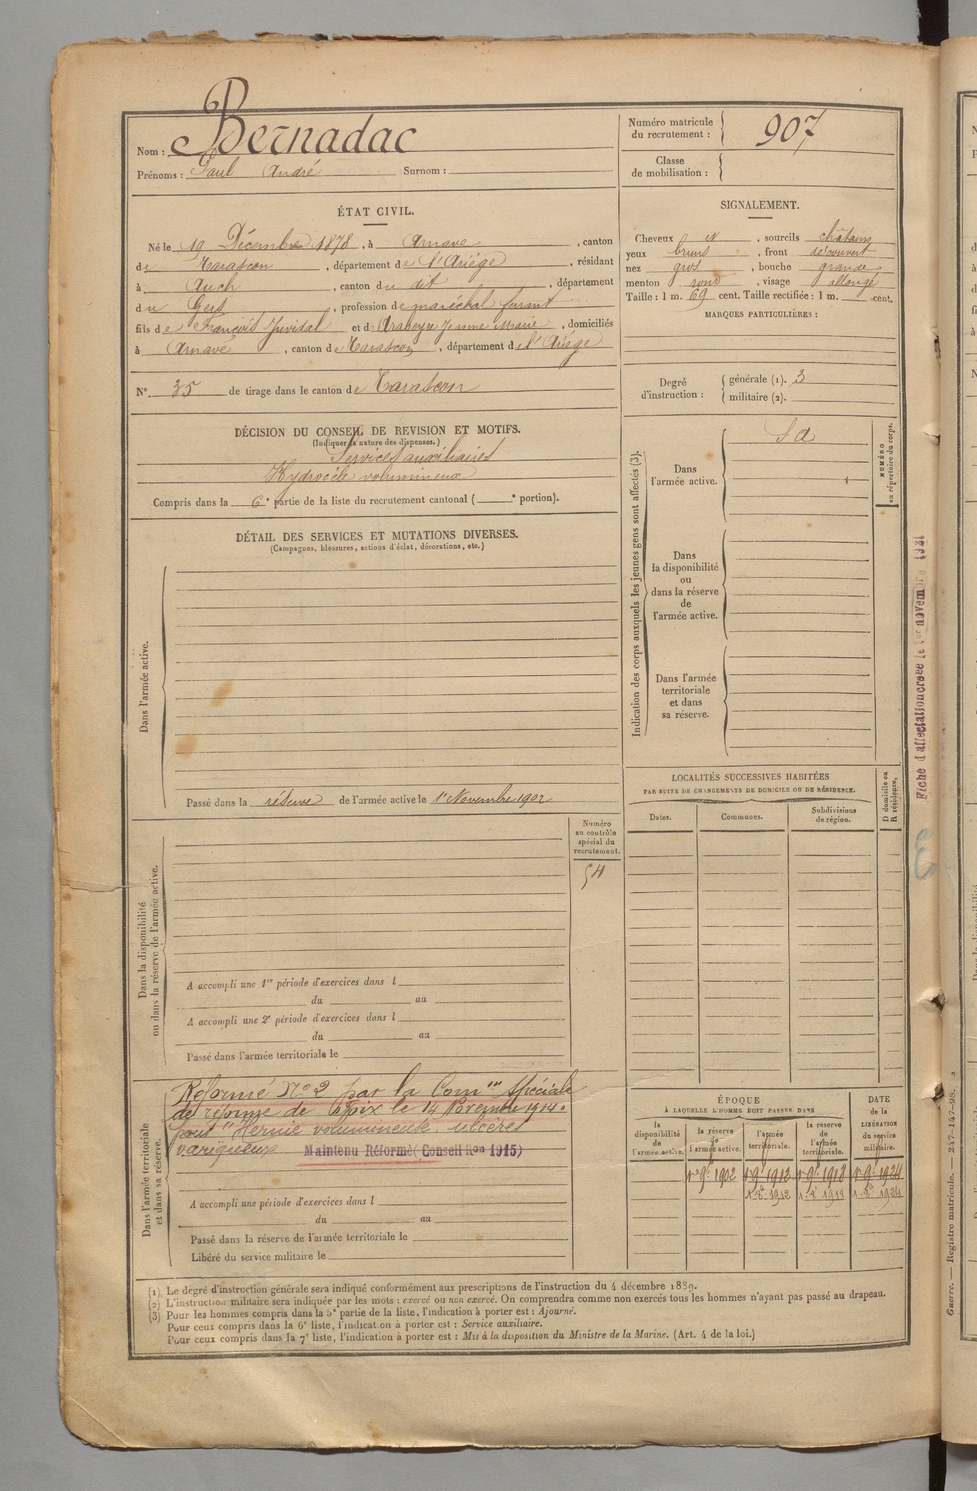 Nom : Bernadac
Prénoms : Paul André Surnom :
Numéro matricule du recrutement : 907
Classe de mobilisation :
ÉTAT CIVIL.
Né le 19 Décembre 1878, à Arnave, canton
de Tarascon, département de l'Ariège, résidant
à Auch, canton du dit, département
du Gers, profession de maréchal ferrant
fils de François Juvidal et d'Arabeyre Jeanne Marie, domiciliés
à Arnave, canton de Tarascon, département de l'Ariège
N° 35 de tirage dans le canton de Tarascon
SIGNALEMENT.
Cheveux N, sourcils châtains
yeux bruns, front découvert
nez gros, bouche grande
menton rond, visage allongé
Taille : 1 m. 69 cent. Taille rectifiée : 1 m. cent.
MARQUES PARTICULIÈRES :
Degré d'instruction : générale (1). 3
militaire (2).
DÉCISION DU CONSEIL DE REVISION ET MOTIFS.
(Indiquer la nature des dispenses.)
Services auxiliaires
Hydrocèle volumineux
Compris dans la 6e partie de la liste du recrutement cantonal ( e portion).
DÉTAIL DES SERVICES ET MUTATIONS DIVERSES.
(Campagnes, blessures, actions d'éclat, décorations, etc.)
Dans l'armée active.
Passé dans la réserve de l'armée active le 1er Novembre 1902
Indication des corps auxquels les jeunes gens sont affectés (3).
Dans l'armée active.
S a
Dans la disponibilité ou dans la réserve de l'armée active.
Dans l'armée territoriale et dans sa réserve.
NUMÉRO au répertoire du corps.
Fiche d'affectation créée le 1er novembre 1921
LOCALITÉS SUCCESSIVES HABITÉES
PAR SUITE DE CHANGEMENTS DE DOMICILE OU DE RÉSIDENCE.
Dates. Communes. Subdivisions de région.
D domicile ou R résidence.
Dans la disponibilité ou dans la réserve de l'armée active.
Numéro au contrôle spécial du recrutement.
54
A accompli une 1re période d'exercices dans l
du au
A accompli une 2e période d'exercices dans l
du au
Passé dans l'armée territoriale le
Dans l'armée territoriale et dans sa réserve.
Réformé N° 2 par la Comon Spéciale
de réforme de Foix le 14 Novembre 1914.
pour "Hernie volumineuse ulcères
variqueux
Maintenu Réformé (Conseil Ron 1915)
A accompli une période d'exercices dans l
du au
Passé dans la réserve de l'armée territoriale le
Libéré du service militaire le
ÉPOQUE
À LAQUELLE L'HOMME DOIT PASSER DANS
la disponibilité de l'armée active. la réserve de l'armée active. l'armée territoriale. la réserve de l'armée territoriale.
DATE de la LIBÉRATION du service militaire.
1er 9e 1902 1er 9e 1912 1er 9e 1918 1er 9e 1924
(1) Le degré d'instruction générale sera indiqué conformément aux prescriptions de l'instruction du 4 décembre 1889.
(2) L'instruction militaire sera indiquée par les mots : exercé ou non exercé. On comprendra comme non exercés tous les hommes n'ayant pas passé au drapeau.
(3) Pour les hommes compris dans la 5e partie de la liste, l'indication à porter est : Ajourné.
Pour ceux compris dans la 6e liste, l'indication à porter est : Service auxiliaire.
Pour ceux compris dans la 7e liste, l'indication à porter est : Mis à la disposition du Ministre de la Marine. (Art. 4 de la loi.)
Guerre. — Registre matricule. — 247-147-98.